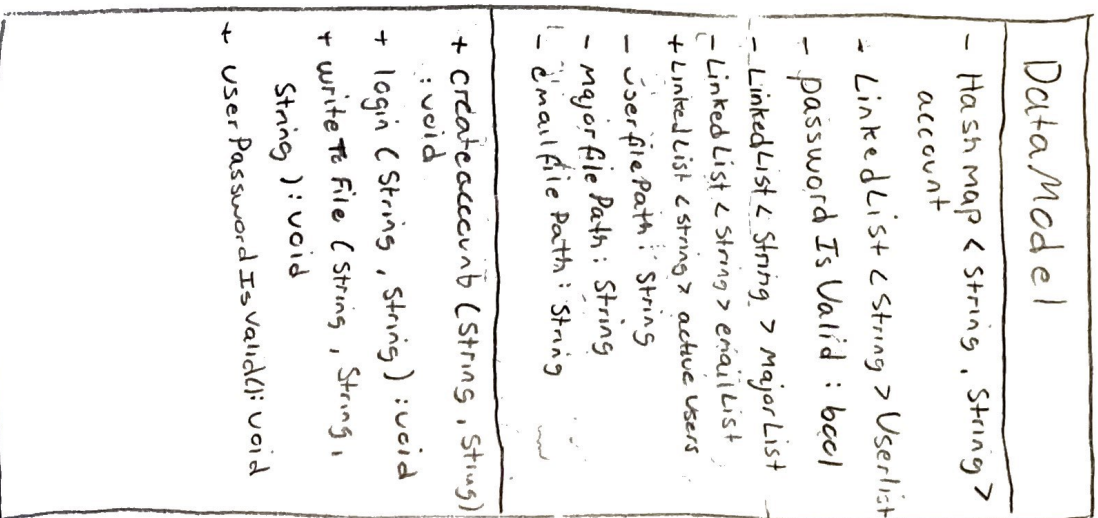 DataModel
- Hash map < String, String>
account
- LinkedList < String > Userlist
- password Is Valid : bool
- LinkedList < String > MajorList
- LinkedList < String > emailList
+ LinkedList < String > active Users
- Userfile Path : String
- Major file Path : String
- email file Path : String
+ createaccount (String, String)
: void
+ login (String, String) : void
+ write To File (String, String,
String) : void
+ userPassword Is Valid() : void